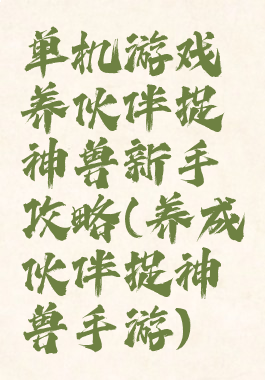 单机游戏
养伙伴捉
神兽新手
攻略(养成
伙伴捉神
兽手游)